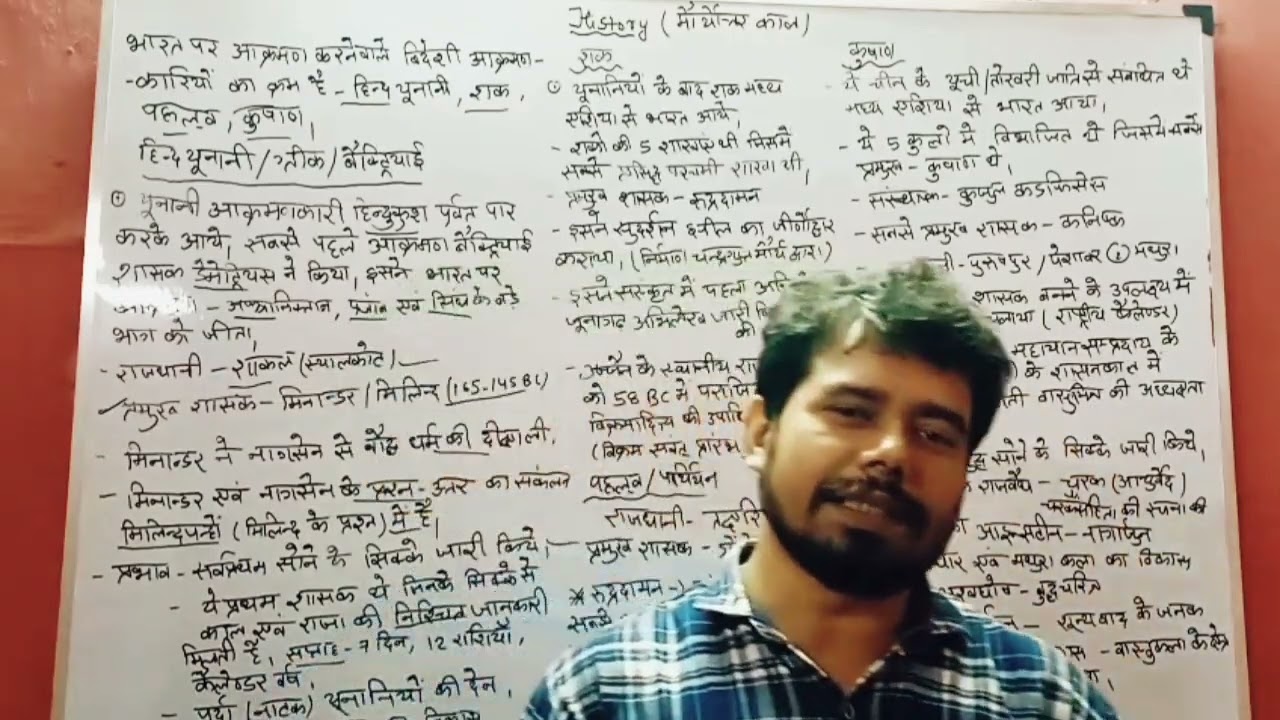 History (मौर्योत्तर काल)
भारत पर आक्रमण करनेवाले विदेशी आक्रमण-
-कारियों का क्रम है - हिन्द यूनानी, शक,
पहलव, कुषाण,
हिन्द यूनानी / ग्रीक / बैक्ट्रियाई
यूनानी आक्रमणकारी हिन्दुकुश पर्वत पार
करके आये, सबसे पहले आक्रमण बैक्ट्रियाई
शासक डेमेट्रियस ने किया, इसने भारत पर
- अफगानिस्तान, पंजाब एवं सिंध के बड़े
भाग को जीता,
- राजधानी - शाकल (स्यालकोट)
प्रमुख शासक - मिनान्डर / मिलिन्द (165-145 BC)
- मिनान्डर ने नागसेन से बौद्ध धर्म की दीक्षा ली,
- मिनान्डर एवं नागसेन के प्रश्न-उत्तर का संकलन
मिलिन्दपन्हो (मिलिन्द के प्रश्न) में है,
- प्रभाव - सर्वप्रथम सोने के सिक्के जारी किये,
- ये प्रथम शासक थे जिनके सिक्के से
काल एवं राजा की निश्चित जानकारी
मिलती है, सप्ताह - 7 दिन, 12 राशियाँ,
कैलेण्डर वर्ष,
- पर्दा (नाटक) यूनानियों की देन,
विकास
शक
यूनानियों के बाद शक मध्य
एशिया से भारत आये,
- शकों की 5 शाखाएं थी जिसमें
सबसे प्रसिद्ध पश्चमी शाखा थी,
- प्रमुख शासक - रुद्रदामन
- इसने सुदर्शन झील का जीर्णोद्धार
कराया, (निर्माण चन्द्रगुप्त मौर्य द्वारा)
- इसने संस्कृत में पहला
जूनागढ़ अभिलेख जारी
की
- उज्जैन के स्थानीय
को 58 BC में
विक्रमादित्य की
(विक्रम संवत् प्रारंभ
पहलव / पार्थियन
राजधानी -
- प्रमुख शासक -
* रुद्रदामन ->
सबसे
कुषाण
- ये चीन के यूची / तोखरी जाति से संबंधित थे
मध्य एशिया से भारत आया,
- ये 5 कुलों में विभाजित थे जिसमें सबसे
प्रमुख - कुषाण थे,
- संस्थापक - कुजुल कडफिसेस
- सबसे प्रमुख शासक - कनिष्क
- पुरुषपुर / पेशावर ② मथुरा
शासक बनने के उपलक्ष्य में
(राष्ट्रीय कैलेण्डर)
महायान सम्प्रदाय के
के शासनकाल में
वसुमित्र की अध्यक्षता
सोने के सिक्के जारी किये,
राजवैद्य - चरक (आयुर्वेद)
चरकसंहिता की रचना की
आइन्सटीन - नागार्जुन
एवं मथुरा कला का विकास
- बुद्धचरित
- शून्यवाद के जनक
- वास्तुकला के क्षेत्र